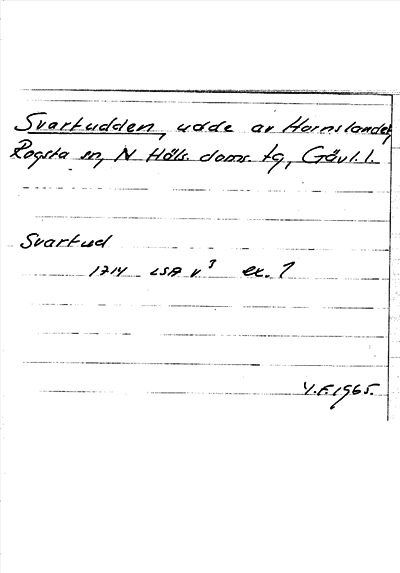 Svartudden, udde av Hornslandet,
Rogsta sn, N Häls. doms. tg, Gävl. l.
Svartud
1714 LSA v³ ex. 1
Y.F. 1965.